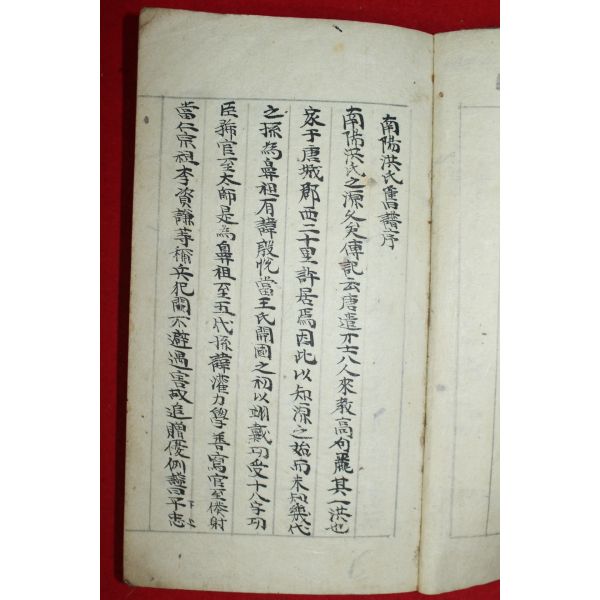 南陽洪氏舊譜序
南陽洪氏之源久矣傳記云唐遣才士八人來敎高句麗其一洪也
家于唐城郡西二十里許居焉因此以知源之始而未知幾代
之孫爲鼻祖有諱殷悅當王氏開國之初以翊戴功受十八字功
臣號官至太師是爲鼻祖至五代孫諱灌力學善寫官至僕射
當仁宗祖李資謙等稱兵犯闕不避遇害故追贈優例諡曰平忠